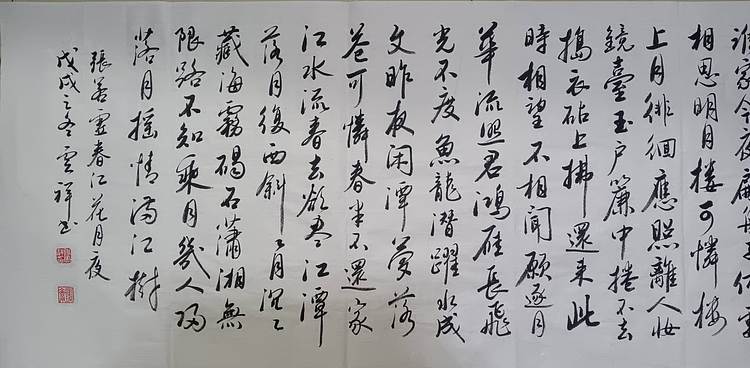 誰家今夜扁舟子何處
相思明月樓可憐樓
上月徘徊應照離人妝
鏡臺玉户簾中捲不去
搗衣砧上拂還来此
時相望不相聞願逐月
華流照君鴻雁長飛
光不度魚龍潜躍水成
文昨夜闲潭夢落
花可憐春半不還家
江水流春去欲盡江潭
落月復西斜〻月沉〻
藏海霧碣石瀟湘無
限路不知乘月幾人归
落月摇情滿江樹
張若虚春江花月夜
戊戌之冬雲祥书